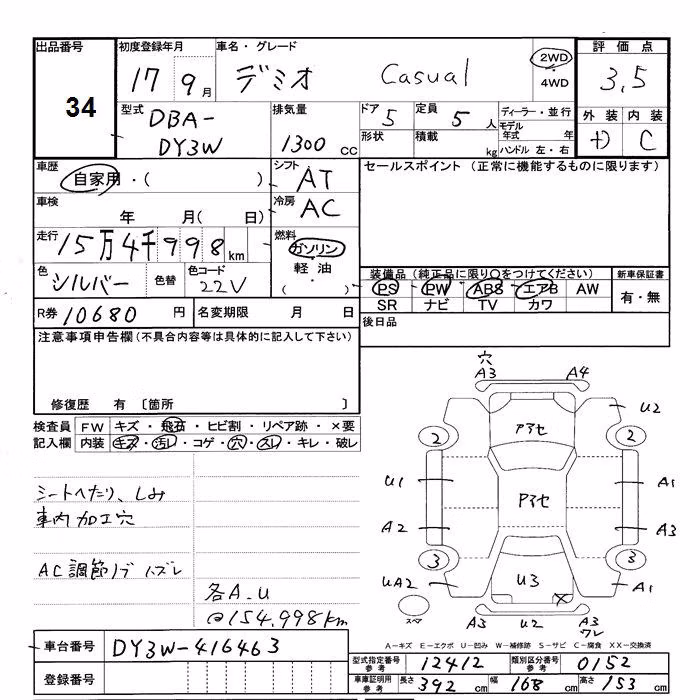 出品番号 34
初度登録年月 17 9月
車名・グレード デミオ Casual
2WD・4WD
評価点 3.5
外装 内装 C
型式 DBA-DY3W
排気量 1300 CC
ドア 5 形状
定員 5 人 積載 kg
ディーラー・並行
モデル年式 年
ハンドル 左・右
車歴 自家用・( )
シフト AT
セールスポイント (正常に機能するものに限ります)
車検 年 月( 日)
冷房 AC
走行 15万4千998 km
燃料 ガソリン 軽油 ( )
色 シルバー 色替 色コード 22V
装備品 (純正品に限り○をつけてください) 新車保証書
PS PW ABS エアB AW 有・無
SR ナビ TV カワ
R券 10680 円 名変期限 月 日
後日品
注意事項申告欄 (不具合内容等は具体的に記入して下さい)
修復歴 有 〔箇所 〕
検査員記入欄
FW キズ・飛石・ヒビ割・リペア跡・×要
内装 キズ・汚レ・コゲ・穴・スレ・キレ・破レ
シートへたり、しみ
車内加工穴
AC調節ノブ ハズレ
各A.U
@154,998km
穴
A3 A4
U2
2 アマセ 2
U1 アマセ A1
A2 A3
3 3
UA2 U3 × A1
スペア A3 U2 A3 ワレ
A-キズ E-エクボ U-凹み W-補修跡 S-サビ C-腐食 XX-交換済
車台番号 DY3W-416463
登録番号
型式指定番号 参考 12412 類別区分番号 参考 0152
車庫証明用 参考 長さ 392 cm 幅 168 cm 高さ 153 cm